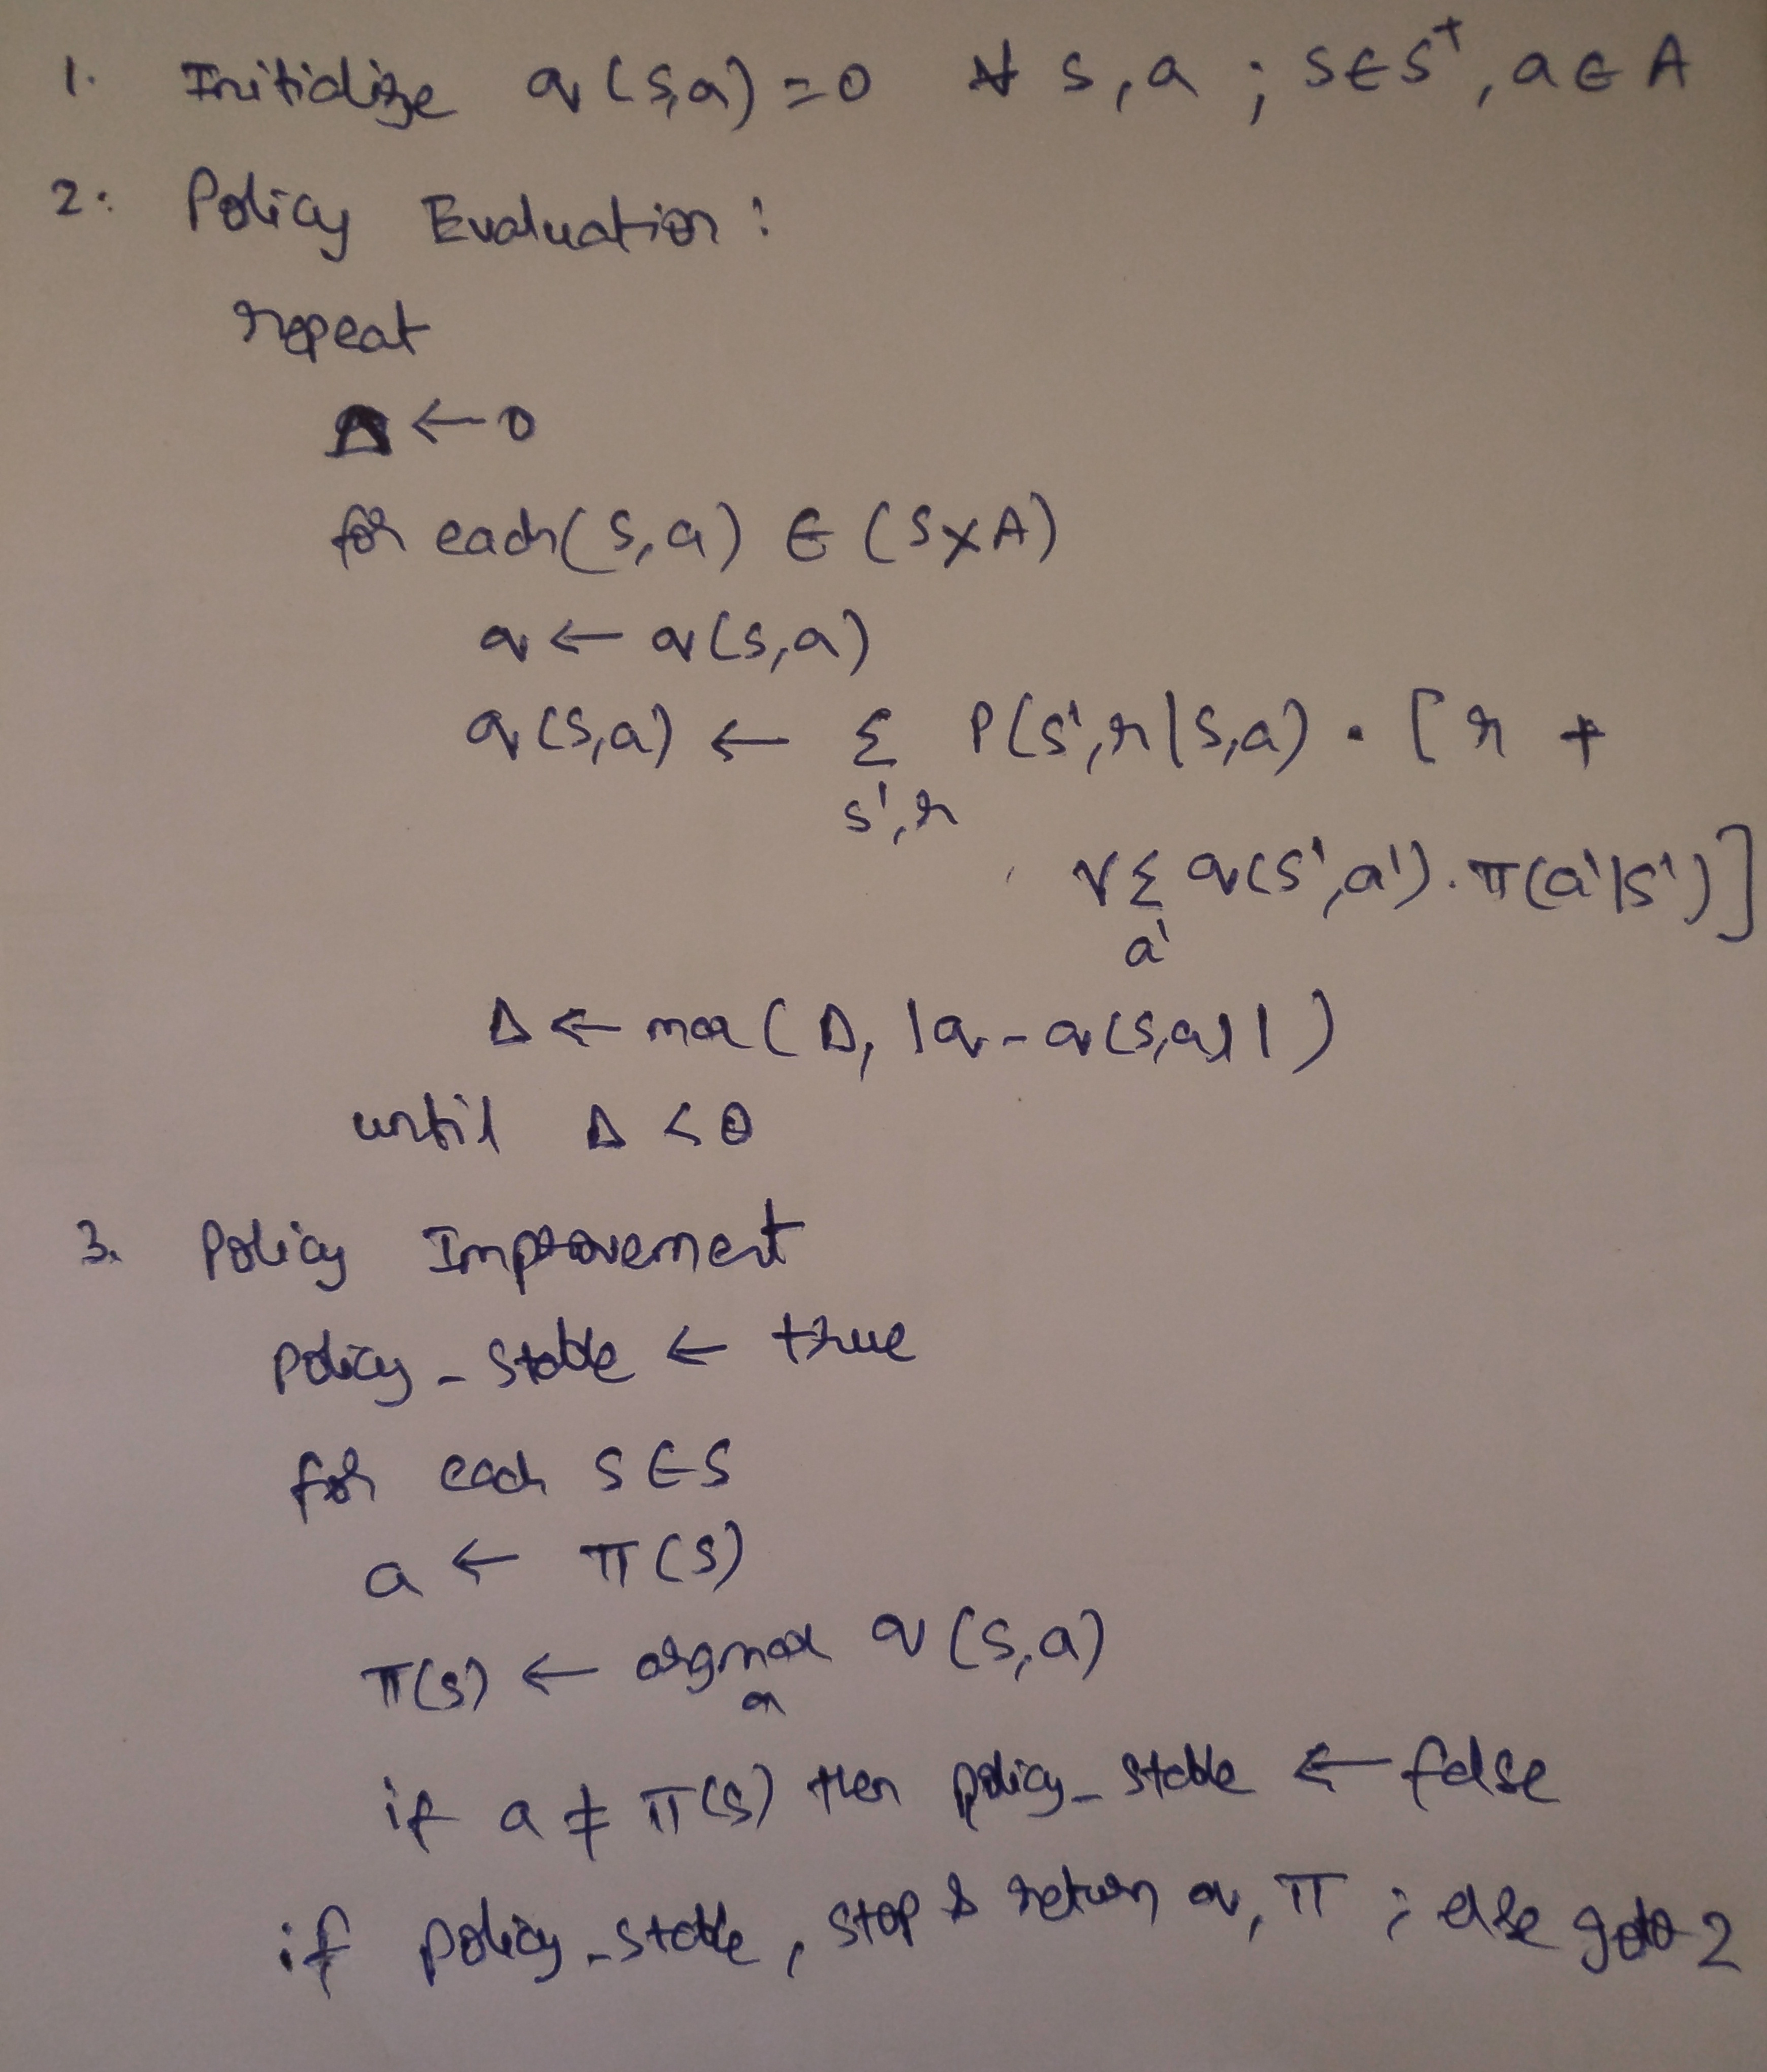 1. Initialize q(s,a)=0 ∀ s,a ; s∈S⁺, a∈A
2. Policy Evaluation:
repeat
Δ←0
for each(s,a) ∈ (S×A)
q ← q(s,a)
q(s,a) ← Σ P(s',r|s,a) · [r +
s',r
γΣ q(s',a').π(a'|s')]
a'
Δ ← max(Δ, |q-q(s,a)|)
until Δ < θ
3. Policy Improvement
policy_stable ← true
for each s∈S
a ← π(s)
π(s) ← argmax q(s,a)
a
if a ≠ π(s) then policy_stable ← false
if policy_stable, stop & return q, π ; else goto 2